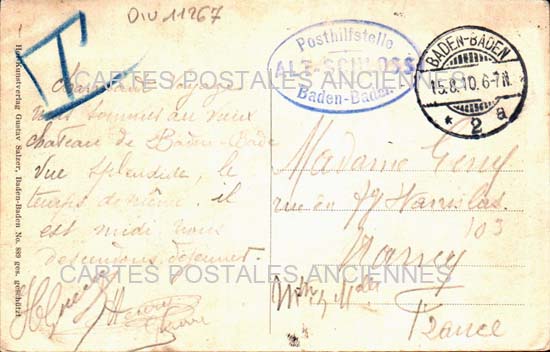 DIV 11267
T
Posthilfstelle
ALT-SCHLOSS
Baden-Baden
BADEN-BADEN
15.8.10.6-7N.
* 2 a
CARTES POSTALES ANCIENNES
Charmant voyage
nous sommes au vieux
château de Baden-Bade
Vue splendide, le
temps de même. il
est midi nous
descendons déjeuner.
Madame Geny
rue St Stanislas
103
Nancy
France
CARTES POSTALES ANCIENNES
Hof-Kunstverlag Gustav Salzer, Baden-Baden No. 889 ges. geschützt.